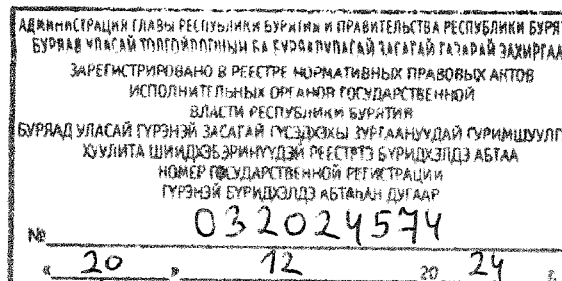 АДМИНИСТРАЦИЯ ГЛАВЫ РЕСПУБЛИКИ БУРЯТИЯ И ПРАВИТЕЛЬСТВА РЕСПУБЛИКИ БУРЯТ
БУРЯАД УЛАСАЙ ТОЛГОЙЛОГШЫН БА БУРЯАД УЛАСАЙ ЗАСАГАЙ ГАЗАРАЙ ЗАХИРГАА
ЗАРЕГИСТРИРОВАНО В РЕЕСТРЕ НОРМАТИВНЫХ ПРАВОВЫХ АКТОВ
ИСПОЛНИТЕЛЬНЫХ ОРГАНОВ ГОСУДАРСТВЕННОЙ
ВЛАСТИ РЕСПУБЛИКИ БУРЯТИЯ
БУРЯАД УЛАСАЙ ГҮРЭНЭЙ ЗАСАГАЙ ГҮСЭДХЭХЫ ЗУРГААНУУДАЙ ГУРИМШУУЛГ
ХУУЛИТА ШИИДХЭБЭРИНҮҮДЭЙ РЕЕСТРТЭ БҮРИДХЭЛДЭ АБТАА
НОМЕР ГОСУДАРСТВЕННОЙ РЕГИСТРАЦИИ
ГҮРЭНЭЙ БҮРИДХЭЛДЭ АБТАҺАН ДУГААР
№ 032024574
« 20 » 12 20 24 г.